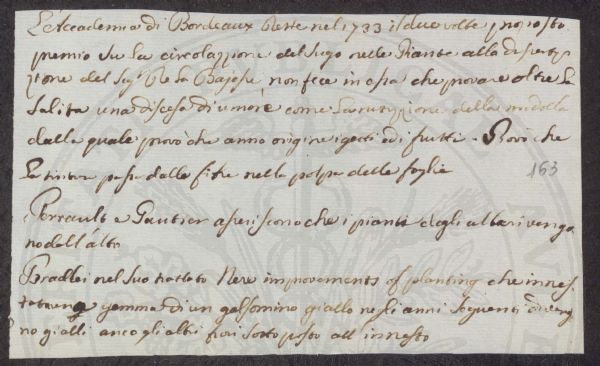 L'Accademia di Bordeaux dette nel 1733 il due volte proposto
premio su la circolazione del sugo nelle Piante alla dissertaz
zione del Sig.r De la Baisse non fece in essa che provare oltre la
salita una discesa di umore come la nutrizione della midolla
dalla quale provò che anno origine i getti ed i frutti. Provò che
la tintura passa dalle fibre nella polpa delle foglie
163
Perrault e Gautier asseriscono che i pianti degli alberi venga
no dall'alto
Bradlei nel suo trattato New improvements of planting che innes
tata una gemma di un gelsomino giallo negli anni seguenti diveng
no gialli anco gli altri fiori sotto posto all'innesto